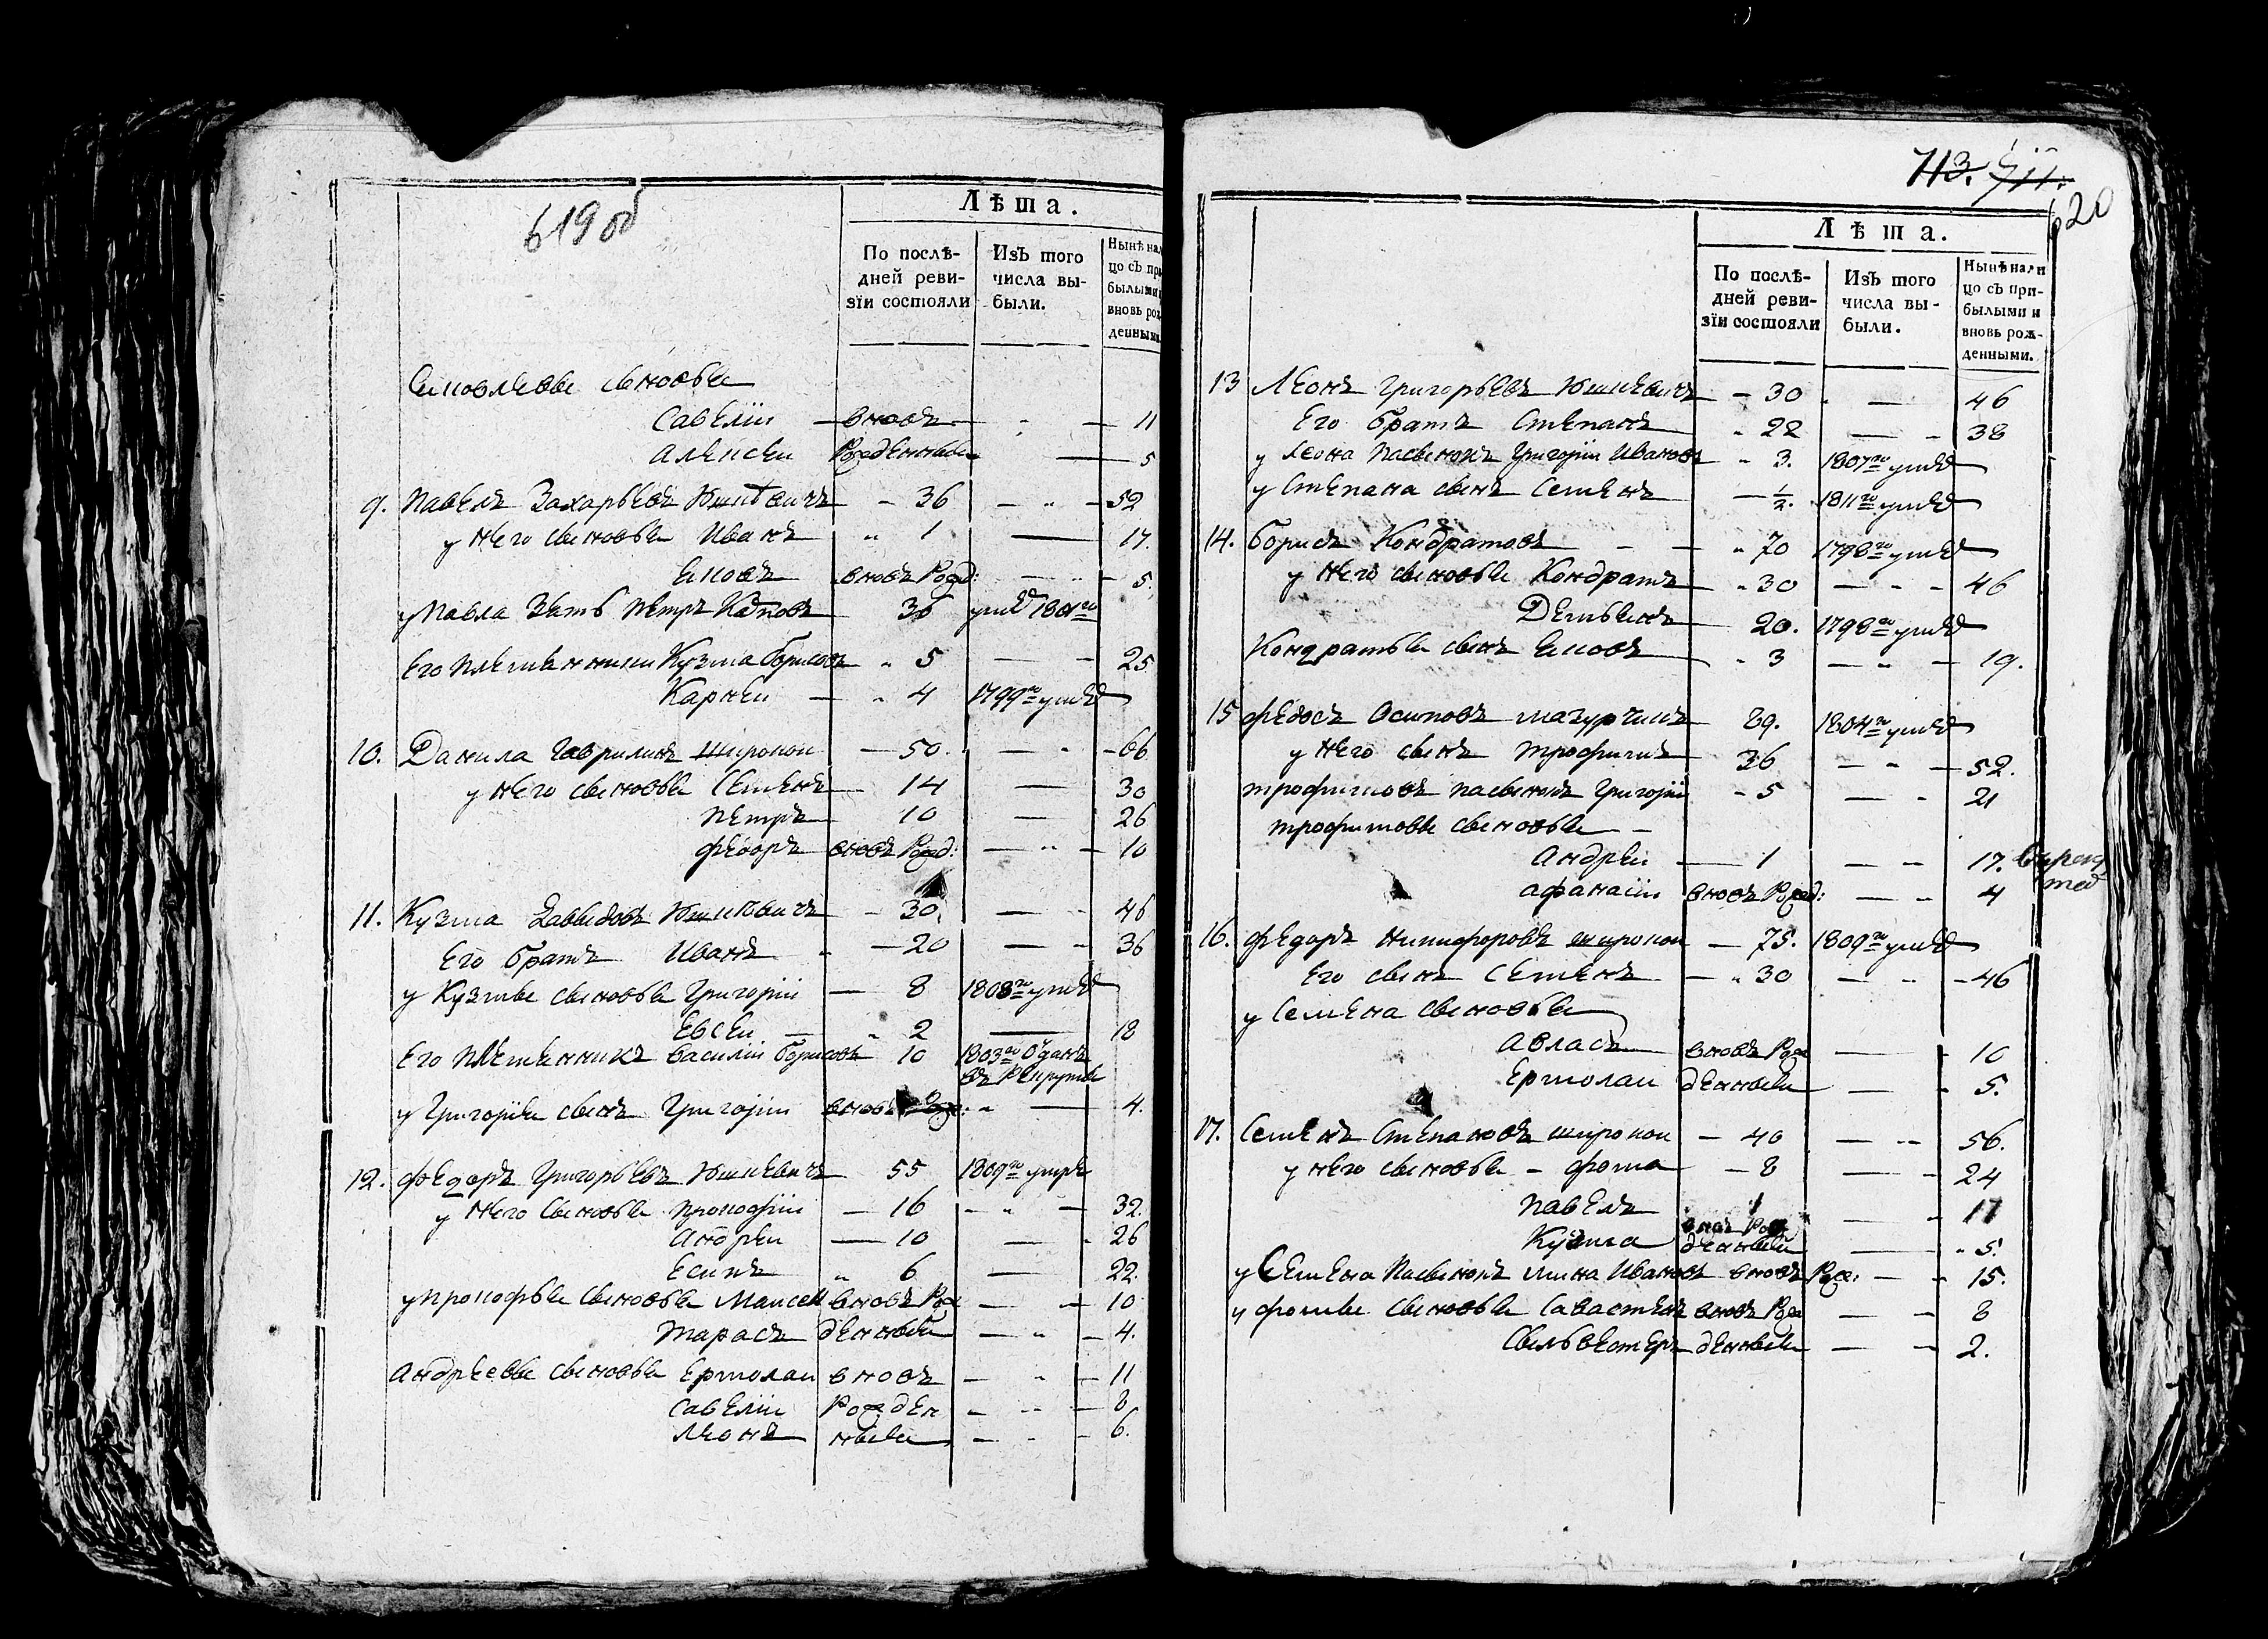 619 об
Лѣта.
По послѣ-
дней реви-
зїи состояли
Изъ того
числа вы-
были.
Нынѣ нали
цо съ при
былыми
вновь рож
денными
Яковлевы сыновьи
Савелiи вновь 11
Алексеи Рожденныи 5
9. Павелъ Захарьевъ Юшкѣвичъ 36 52
у него сыновьи Иванъ 1 17.
Яковъ вновь Рожд: 5
у Павла зять Петръ Карповъ 36 умеръ 1801го
Его племянники Кузма Борисовъ 5 25
Карнѣи 4 1799го умеръ
10. Данила Гаврилинъ Широкои 50. 66
у него сыновьи Семенъ 14 30
Петръ 10 26
Федоръ вновь Рожд: 10
11. Кузма Давыдовъ Юшкѣвичъ 30 46
Его братъ Иванъ 20 36
у Кузмы сыновьи Григорiи 8 1808го умеръ
Евсеи 2 18
Его племянникъ Василiи Борисовъ 10 1803го Отданъ
въ Рекруты
у Григорiи сынъ Григорiи вновь 4.
12. Федоръ Григорьевъ Юшкевичъ 55 1809го умре
у него сыновьи Прокофiи 16 32.
Андреи 10 26
Есипъ 6 22.
у Прокофьи сыновьи Моисеи вновь Рож 10
Тарасъ денныи 4.
Андреевы сыновьи Ермолаи вновь 11
Савелiи Рожден 8
Леонъ ныи 6.
713. 711.
620
Лѣта.
По послѣ-
дней реви-
зїи состояли
Изъ того
числа вы-
были.
Нынѣ нали
цо съ при-
былыми и
вновь рож-
денными.
13 Леонъ Григорьевъ Юшкевичъ 30 46
Его братъ Степанъ 22 38
у Леона пасынокъ Григорiи Ивановъ 3. 1807го умеръ
у Степана сынъ Семенъ 1/2. 1811го умеръ
14. Борисъ Кондратовъ 70 1798го умеръ
у него сыновьи Кондратъ 30 46
Демьянъ 20. 1798го умеръ
Кондратьи сынъ Яковъ 3 19.
15 Федосъ Осиповъ Мазурчикъ 89. 1804го умеръ
у него сынъ Трофимъ 36 52.
Трофимовъ пасынокъ Григорiи 5 21
Трофимовы сыновьи
Андреи 1 17.
Афанасiи вновь Рожд: 4
16. Федоръ Никифоровъ Широкои 75. 1809го умеръ
Его сынъ Семенъ 30 46
у Семена сыновьи
Авласъ вновь Рож 10
Ермолаи денныи 5.
17. Семенъ Степановъ Широкои 40 56.
у него сыновьи Фома 8 24
Павелъ 1 17
Кузма вновь Рож 5.
денныи
у Семена Пасынокъ Мина Ивановъ вновь Рож: 15.
у Фомы сыновьи Савастеянъ вновь Рож 8
Сильвестеръ денныи 2.